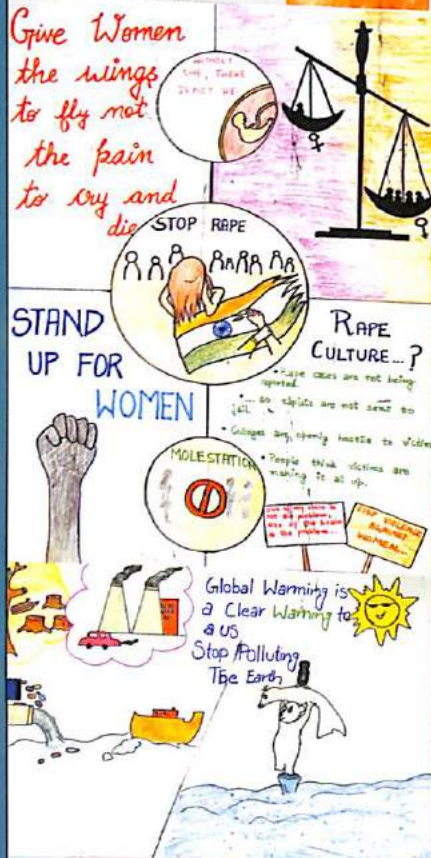 Give Women
the wings
to fly not
the pain
to cry and
die
WITHOUT
SHE, THERE
IS NOT HE
STOP RAPE
STAND
UP FOR
WOMEN
RAPE
CULTURE...?
• Rape cases are not being
reported.
are not sent to
jail.
are openly hostile to victim
• People think victims are
making it all up.
MOLESTATION
is the problem...
STOP VIOLENCE
AGAINST
WOMEN...
Global Warming is
a Clear Warning to
a us
Stop Polluting
The Earth